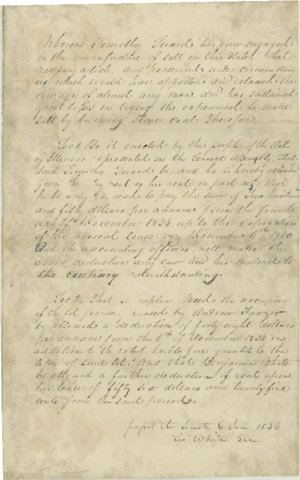 Whereas Timothy Guard has been engaged
in the manufacture of salt in this State, that
necessary article, and persevered under circumstan
ces which would have appalled and relaxed the
energy of almost any man and has sustained
great losses in trying the experiment to make
salt by burning stone coal: Therefore
Sec 1 Be it enacted by the people of the State
of Illinois represented in the General Assembly, That
said Timothy Guard be and he is hereby released
from the of his rent in part that
he only be to pay the sum of two hundred
and fifty dollars per annum from the fourth
day of December 1834 up to the expiration
of the present lease in November 1840
And the accounting officer will make the
above deduction any law
the contrary notwithstanding.
Sec 2 That Stephen the occupier
of the leased by Andrew Frazer
be allowed a deduction of forty eight dollars
per annum from the of November 1834 in
addition to the relief heretofore granted to the
And that Benjamin White
be allowed a further deduction of rent upon
his lease of fifty six dollars and twenty five
cents from the said period
passed the Senate 6 Jan 1836
Leo White Sec